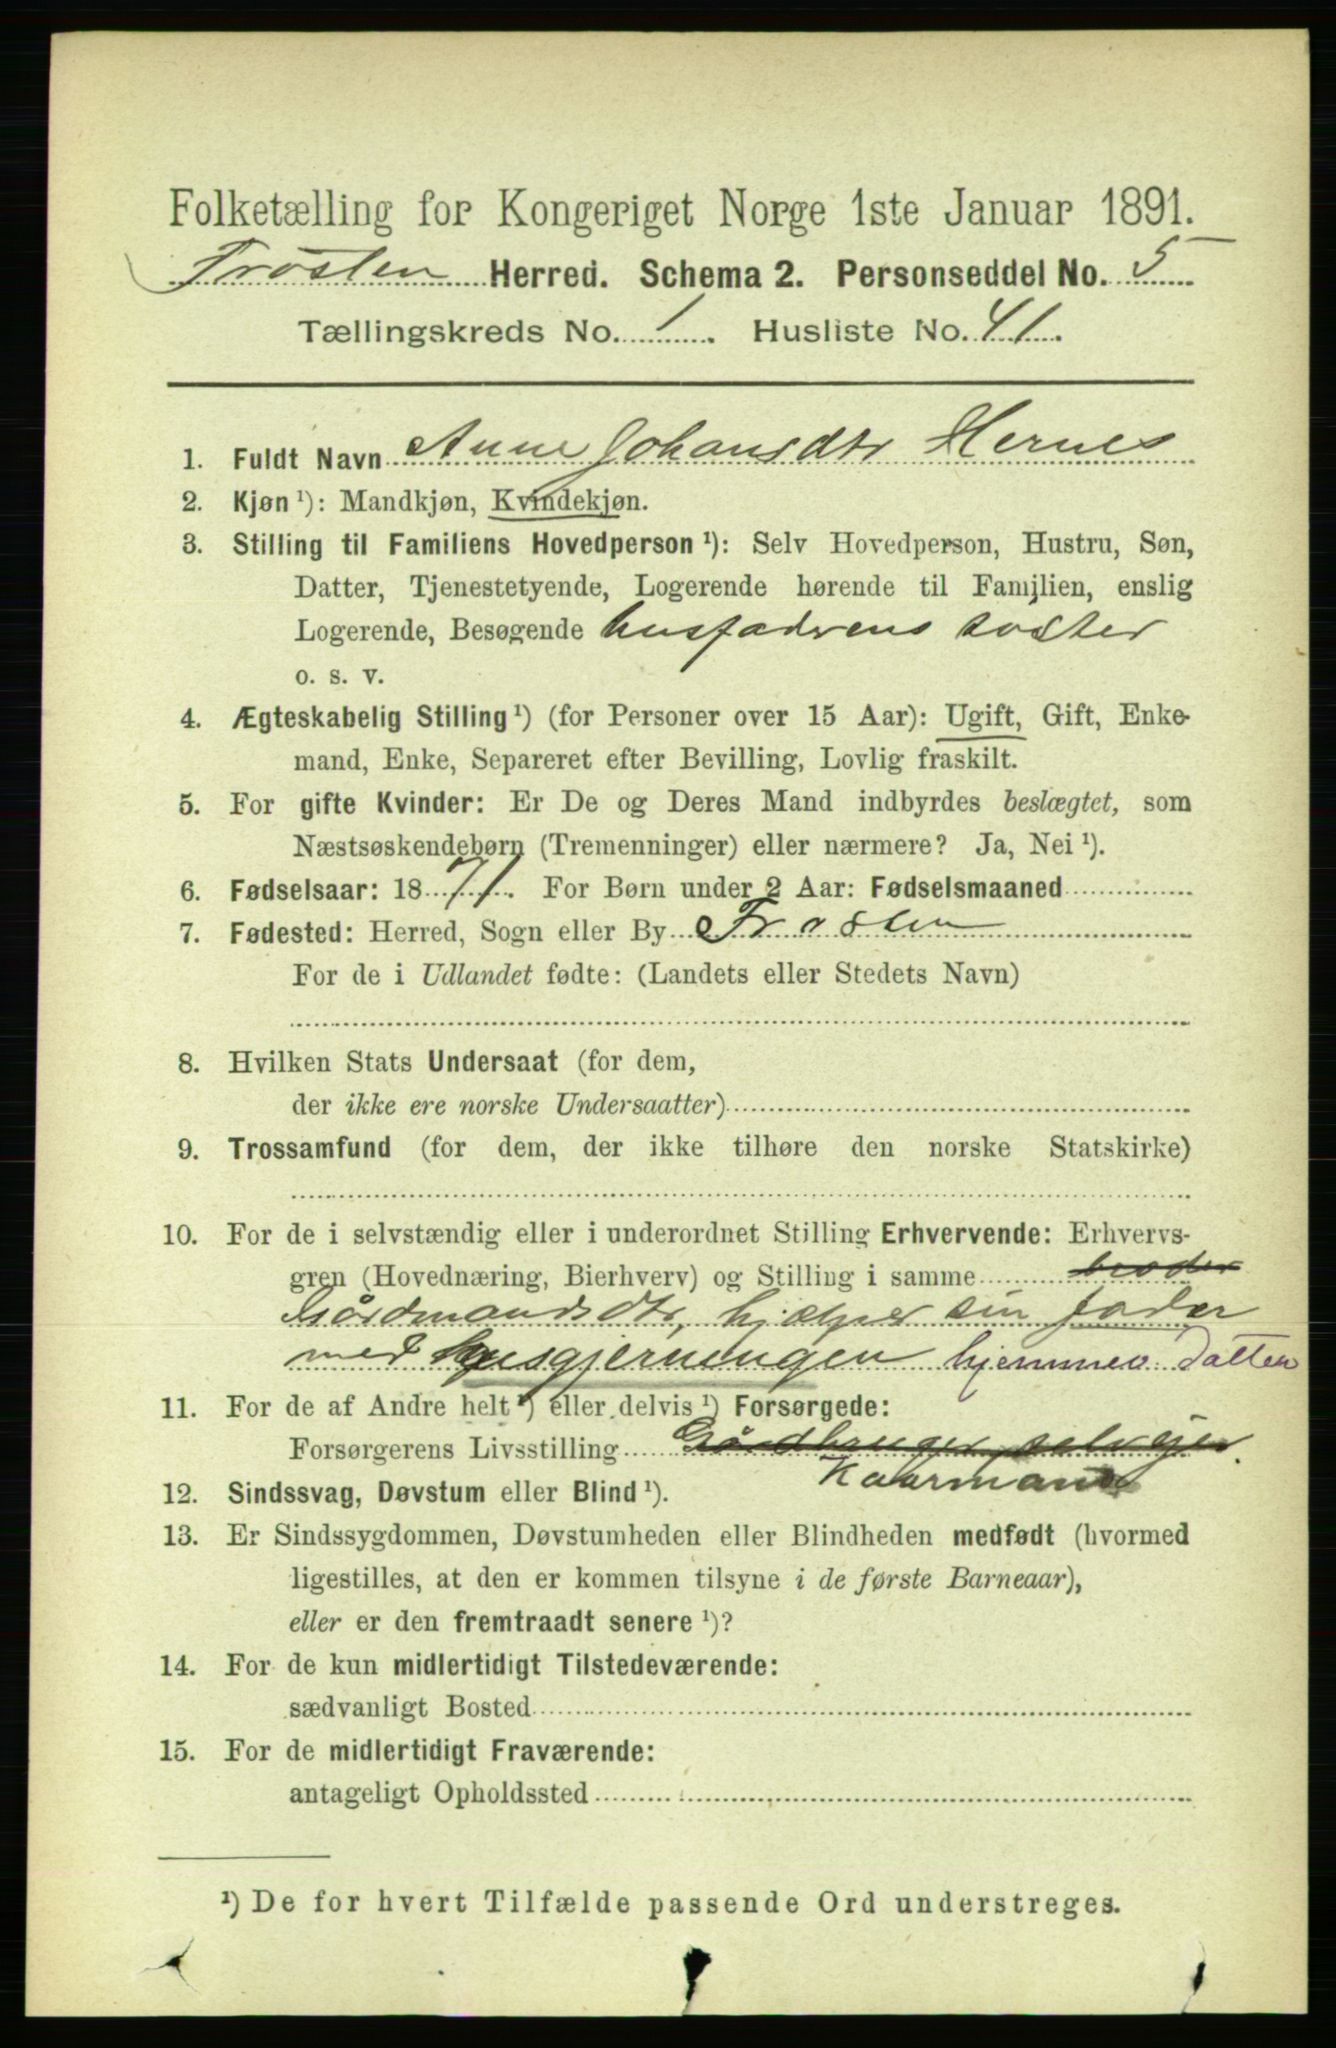 Folketælling for Kongeriget Norge 1ste Januar 1891.
Frosten Herred. Schema 2. Personseddel No. 5
Tællingskreds No. 1. Husliste No. 41.
1. Fuldt Navn Anne Johansdtr Hernes
2. Kjøn ¹): Mandkjøn, Kvindekjøn.
3. Stilling til Familiens Hovedperson ¹): Selv Hovedperson, Hustru, Søn,
Datter, Tjenestetyende, Logerende hørende til Familien, enslig
Logerende, Besøgende husfaderens søster
o. s. v.
4. Ægteskabelig Stilling ¹) (for Personer over 15 Aar): Ugift, Gift, Enke-
mand, Enke, Separeret efter Bevilling, Lovlig fraskilt.
5. For gifte Kvinder: Er De og Deres Mand indbyrdes beslægtet, som
Næstsøskendebørn (Tremenninger) eller nærmere? Ja, Nei ¹).
6. Fødselsaar: 1871. For Børn under 2 Aar: Fødselsmaaned
7. Fødested: Herred, Sogn eller By Frosten
For de i Udlandet fødte: (Landets eller Stedets Navn)
8. Hvilken Stats Undersaat (for dem,
der ikke ere norske Undersaatter)
9. Trossamfund (for dem, der ikke tilhøre den norske Statskirke)
10. For de i selvstændig eller i underordnet Stilling Erhvervende: Erhvervs-
gren (Hovednæring, Bierhverv) og Stilling i samme broder
Gårdmandsdtr, hjælper sin fader
med husgjerningen hjemmev. Datter
11. For de af Andre helt ¹) eller delvis ¹) Forsørgede:
Forsørgerens Livsstilling Gårdbruger, selvejer.
Kaarmand
12. Sindssvag, Døvstum eller Blind ¹).
13. Er Sindssygdommen, Døvstumheden eller Blindheden medfødt (hvormed
ligestilles, at den er kommen tilsyne i de første Barneaar),
eller er den fremtraadt senere ¹)?
14. For de kun midlertidigt Tilstedeværende:
sædvanligt Bosted
15. For de midlertidigt Fraværende:
antageligt Opholdssted
¹) De for hvert Tilfælde passende Ord understreges.